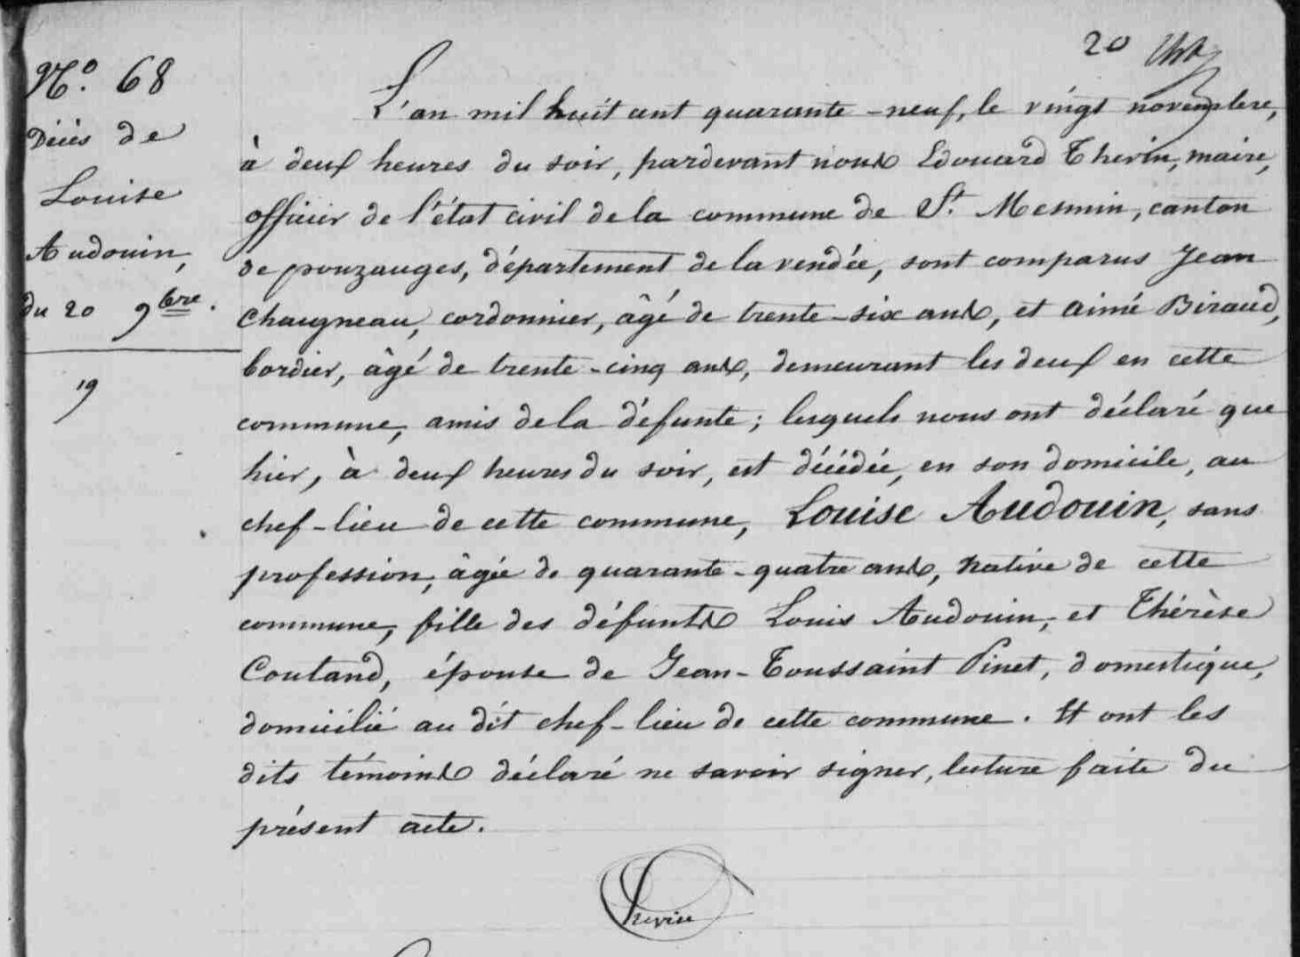 20
N.º 68
Décès de
Louise
Audouin,
du 20 9bre.
19
L'an mil huit cent quarante-neuf, le vingt novembre,
à deux heures du soir, pardevant nous Edouard Thevin, maire,
officier de l'état civil de la commune de St. Mesmin, canton
de pouzauges, département de la vendée, sont comparus Jean
Chaigneau, cordonnier, âgé de trente-six ans, et aimé Biraud,
bordier, âgé de trente-cinq ans, demeurant les deux en cette
commune, amis de la défunte; lesquels nous ont déclaré que
hier, à deux heures du soir, est décédée, en son domicile, au
chef-lieu de cette commune, Louise Audouin, sans
profession, âgée de quarante-quatre ans, native de cette
commune, fille des défunts Louis Audouin, et Thérèse
Coutand, épouse de Jean-Toussaint Pinet, domestique,
domicilié au dit chef-lieu de cette commune. Et ont les
dits témoins déclaré ne savoir signer, lecture faite du
présent acte.
Thevin